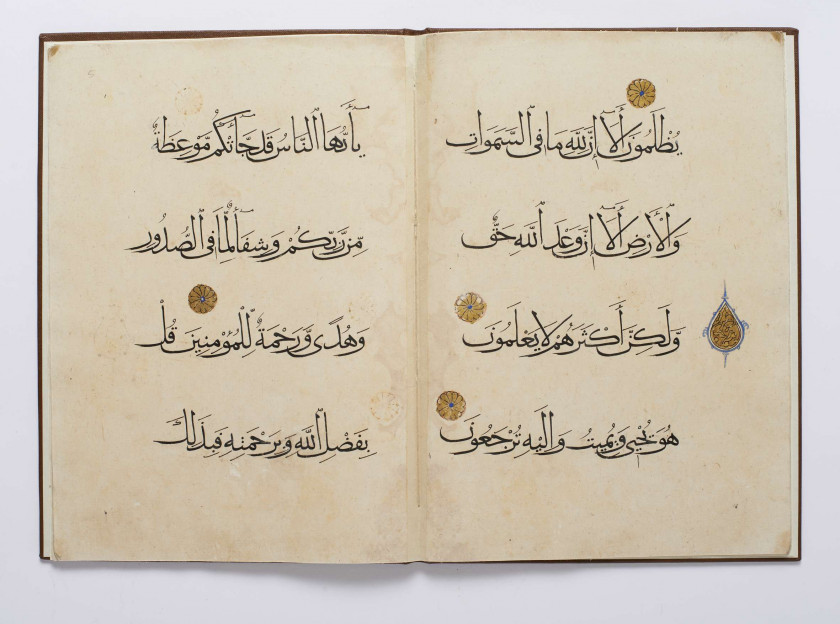 يُظْلَمُونَ أَلَا إِنَّ لِلَّهِ مَا فِى السَّمَوَاتِ
وَالْأَرْضِ أَلَا إِنَّ وَعْدَ اللَّهِ حَقٌّ
وَلَكِنَّ أَكْثَرَهُمْ لَا يَعْلَمُونَ
هُوَ يُحْيِي وَيُمِيتُ وَإِلَيْهِ تُرْجَعُونَ
يَأَيُّهَا النَّاسُ قَدْ جَاءَتْكُمْ مَوْعِظَةٌ
مِنْ رَبِّكُمْ وَشِفَاءٌ لِمَا فِى الصُّدُورِ
وَهُدًى وَرَحْمَةٌ لِلْمُؤْمِنِينَ قُلْ
بِفَضْلِ اللَّهِ وَبِرَحْمَتِهِ فَبِذَلِكَ